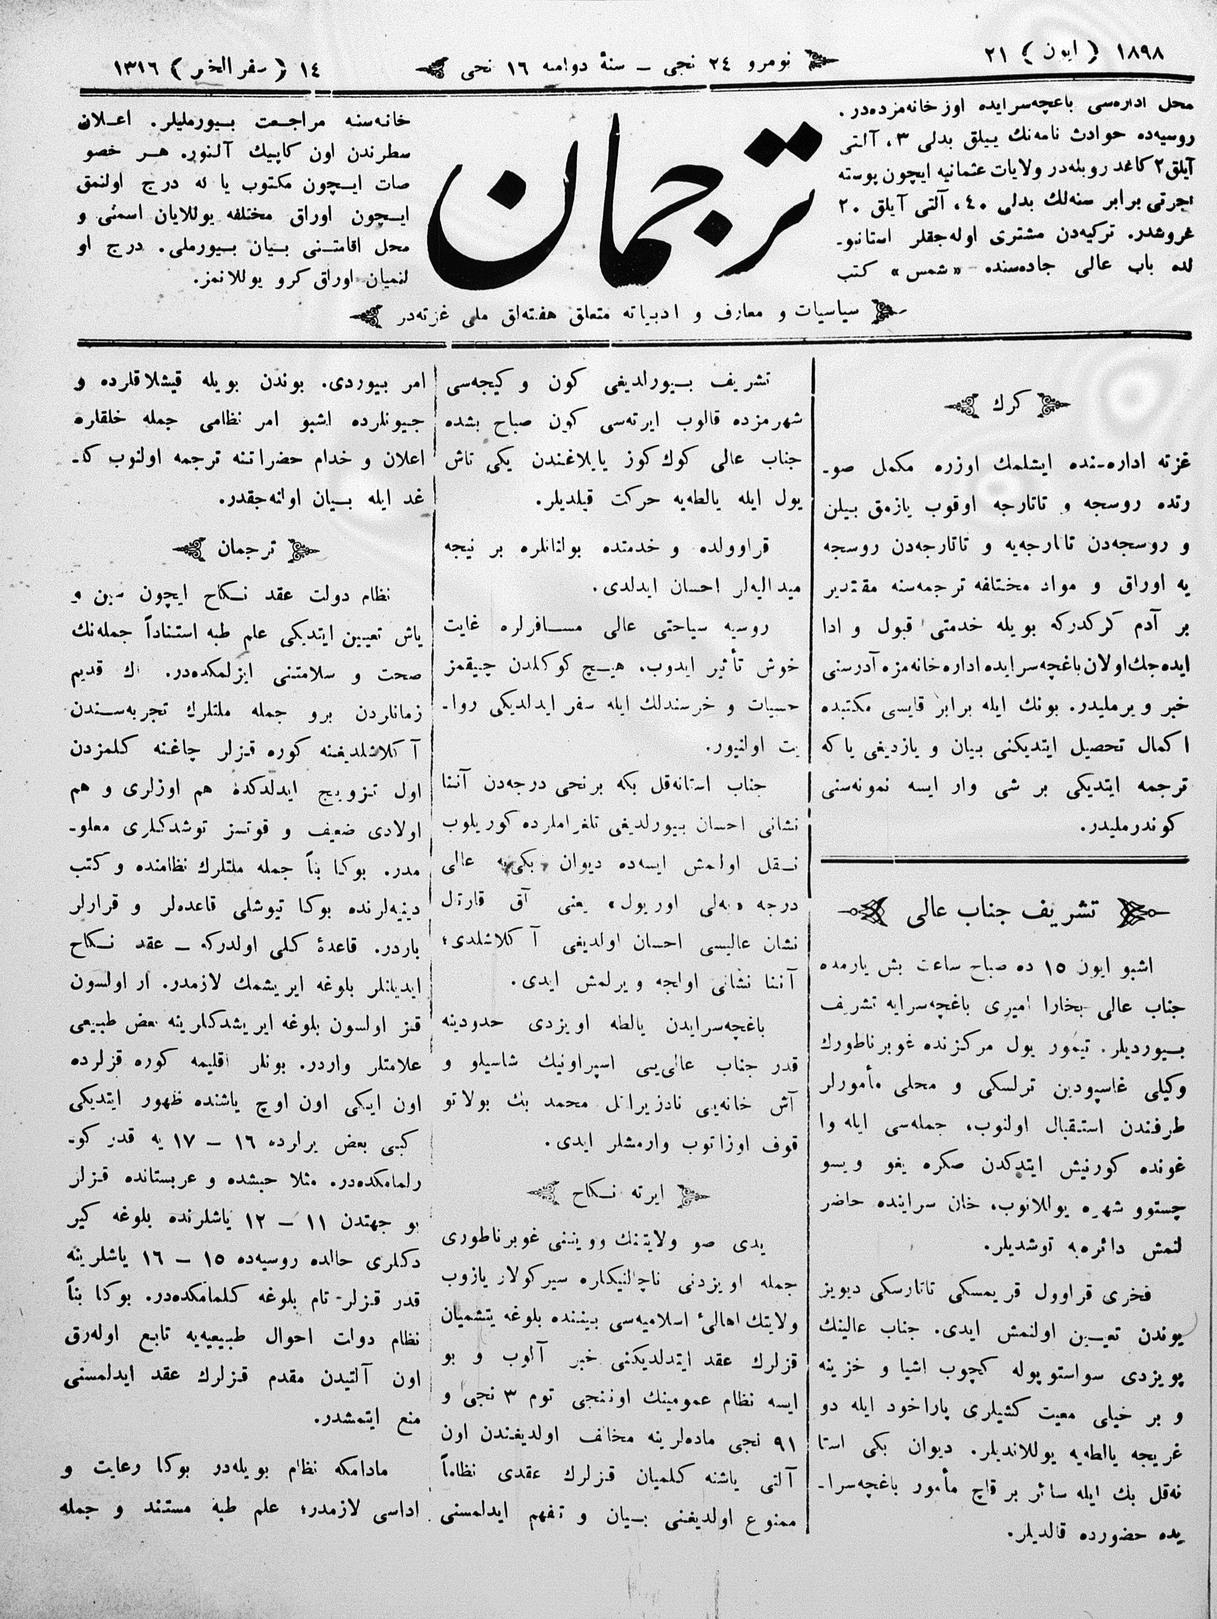 ١٨٩٨ (ايون) ٢١
نومرو ٢٤ نجى ـ سنهٔ دواميه ١٦ نحى
١٤ (سفر الخير) ١٣١٦
محل اداره‌سى باغچه‌سرايده اوز خانه‌مزده‌در.
روسيه‌ده حوادث نامه‌نك ييلق بدلى ٣، آلتى
آيلق ٢ كاغد روبله‌در ولايات عثمانيه ايچون پوسته
اجرتى برابر سنه‌لك بدلى ٤٠، آلتى آيلق ٢٠
غروشدر. تركيه‌دن مشترى اوله‌جقلر استانبو-
لده باب عالى جاده‌سنده «شمس» كتب
خانه‌سنه مراجعت بيورمليلر. اعلان
سطرندن اون كاپيك آلنور. هر خصو
صات ايچون مكتوب يا له درج اولنمق
ايچون اوراق مختلفه يوللايان اسمنى و
محل اقامتنى بيان بيورملى. درج او
لنميان اوراق كرو يوللانمز.
ترجمان
سياسيات و معارف و ادبياته متعلق هفته‌لق ملى غزته‌در
كرك
غزته اداره‌سنده ايشلمك اوزره مكمل صو-
رتده روسجه و تاتارجه اوقوب يازمق بيلن
و روسجه‌دن تاتارجه‌يه و تاتارجه‌دن روسجه
يه اوراق و مواد مختلفه ترجمه‌سنه مقتدير
بر آدم كركدركه بويله خدمتى قبول و ادا
ايده‌جك اولان باغچه‌سرايده اداره خانه‌مزه آدرسنى
خبر ويرمليدر. بونك ايله برابر قايسى مكتبده
اكمال تحصيل ايتديكنى بيان و يازديغى ياكه
ترجمه ايتديكى بر شى وار ايسه نمونه‌سنى
كوندرمليدر.
تشريف جناب عالى
اشبو ايون ١٥ ده صباح ساعت بش يارمده
جناب عالى بخارا اميرى باغچه‌سرايه تشريف
بيورديلر. تيمور يول مركزنده غوبرناطورك
وكيلى غاسپودين ترلسكى و محلى مأمورلر
طرفندن استقبال اولنوب، جمله‌سى ايله وا
غونده كورنيش ايتدكدن صكره يغو ويسو
چستوو شهره يوللانوب، خان سراينده حاضر
لنمش دائره‌يه توشديلر.
فخرى قراوول قريمسكى تاتارسكى ديويز
يوندن تعيين اولنمش ايدى. جناب عالينك
پويزدى سواستوپوله كچوب اشيا و خزينه
و بر خيلى معيت كشيلرى پاراخود ايله دو
غريجه يالطه‌يه يوللانديلر. ديوان بكى استا
نه‌قل بك ايله سائر بر قاچ مأمور باغچه‌سرا-
يده حضورده قالديلر.
تشريف بيورلديغى كون و كيجه‌سى
شهرمزده قالوب ايرته‌سى كون صباح بشده
جناب عالى كوك‌كوز يايلاغندن يكى تاش
يول ايله يالطه‌يه حركت قيلديلر.
قراوولده و خدمتده بولنانلره بر نيجه
ميداليه‌لر احسان ايدلدى.
روسيه سياحتى عالى مسافرلره غايت
خوش تأثير ايدوب. هيچ كوكلدن چيقمز
حسيات و خرسندلك ايله سفر ايدلديكى روا-
يت اولنيور.
جناب استانه‌قل بكه برنجى درجه‌دن آننا
نشانى احسان بيورلديغى تلغرافلرده كوريلوب
نقل اولمش ايسه‌ده ديوان بكى‌يه عالى
درجه «بەلى اوريول» يعنى آق قارتال
نشان عاليسى احسان اولديغى آكلاشلدى؛
آننا نشانى اولجه ويرلمش ايدى.
باغچه‌سرايدن يالطه اويزدى حدودينه
قدر جناب عالى‌يى اسپراونيك شاسيلو و
آش خانه‌يى نادزيراتل محمد بك بولاتو
قوف اوزاتوب وارمشلر ايدى.
ايرته نكاح
يدى صو ولايتنك ووينى غوبرناطورى
جمله اويزدنى ناچالنيكلره سيركولار يازوب
ولايتك اهالئ اسلاميه‌سى بيننده بلوغه يتشميان
قزلرك عقد ايتدلديكنى خبر آلوب و بو
ايسه نظام عمومينك اوننجى توم ٣ نجى و
٩١ نجى ماده‌لرينه مخالف اولديغندن اون
آلتى ياشنه كلميان قزلرك عقدى نظاماً
ممنوع اولديغنى بيان و تفهم ايدلمسنى
امر بيوردى. بوندن بويله قيشلاقلرده و
جيونلرده اشبو امر نظامى جمله خلقلره
اعلان و خدام حضراتنه ترجمه اولنوب كا-
غد ايله بيان اولنه‌جقدر.
ترجمان
نظام دولت عقد نكاح ايچون سن و
ياش تعيين ايتديكى علم طبه استناداً جمله‌نك
صحت و سلامتنى ايزلمكده‌در. اك قديم
زمانلردن برو جمله ملتلرك تجربه‌سندن
آكلاشلديغنه كوره قزلر چاغنه كلمزدن
اول تزويج ايدلدكده هم اوزلرى و هم
اولادى ضعيف و قوتسز توشدكلرى معلو-
مدر. بوكا بناً جمله ملتلرك نظامنده و كتب
دينيه‌لرنده بوكا تيوشلى قاعده‌لر و قرارلر
باردر. قاعدهٔ كلى اولدركه ـ عقد نكاح
ايديلنلر بلوغه ايريشمك لازمدر. ار اولسون
قز اولسون بلوغه ايريشدكلرينه بعض طبيعى
علامتلر واردر. بونلر اقليمه كوره قزلرده
اون ايكى اون اوچ ياشنده ظهور ايتديكى
كبى بعض يرلرده ١٦ ـ ١٧ يه قدر كو-
رلمامكده‌در. مثلا حبشده و عربستانده قزلر
بو جهتدن ١١ ـ ١٢ ياشلرنده بلوغه كير
دكلرى حالده روسيه‌ده ١٥ ـ ١٦ ياشلرينه
قدر قزلر تام بلوغه كلمامكده‌در. بوكا بناً
نظام دولت احوال طبيعيه‌يه تابع اوله‌رق
اون آلتيدن مقدم قزلرك عقد ايدلمسنى
منع ايتمشدر.
مادامكه نظام بويله‌در بوكا رعايت و
اداسى لازمدر؛ علم طبه مستند و جمله